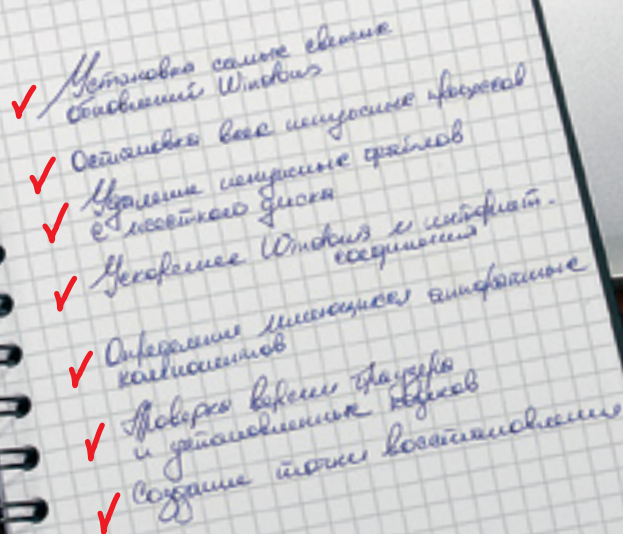 Установка самых свежих
обновлений Windows
Остановка всех ненужных процессов
Удаление ненужных файлов
с жесткого диска
Ускорение Windows и интернет-
соединения
Определение имеющихся аппаратных
компонентов
Проверка версии браузера
и установленных кодеков
Создание точки восстановления